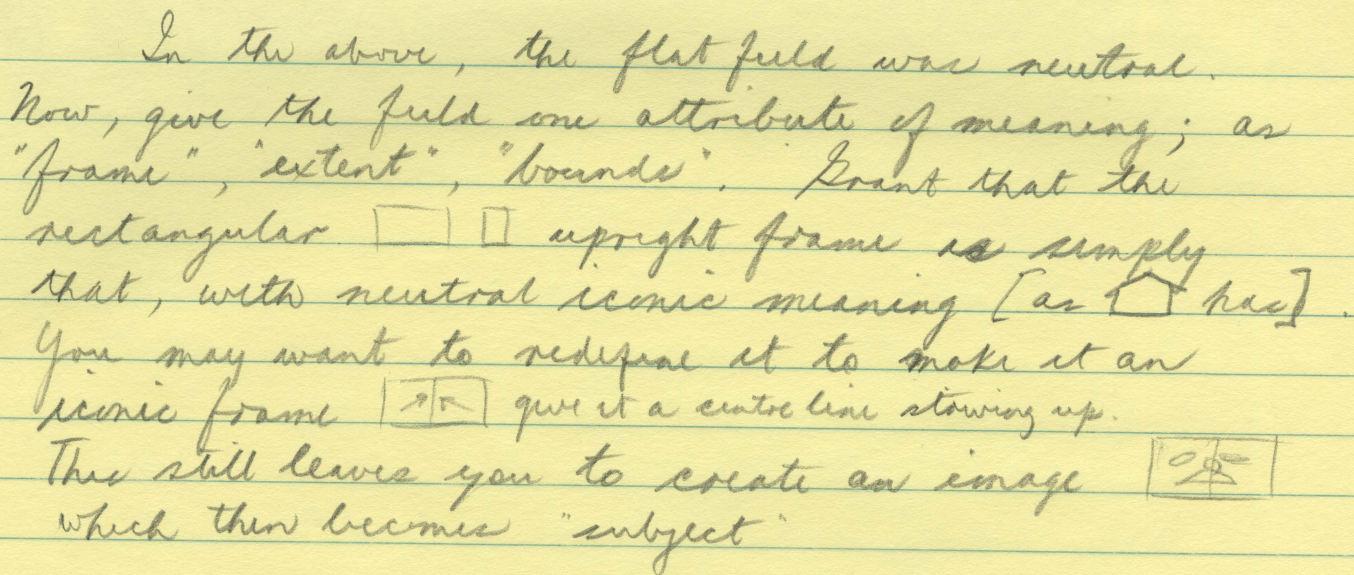 In the above, the flat field was neutral.
Now, give the field one attribute of meaning; as
"frame", "extent", "bounds". Grant that the
rectangular upright frame is simply
that, with neutral iconic meaning [as has].
You may want to redefine it to make it an
iconic frame give it a centre line stowing up.
This still leaves you to create an image
which then becomes "subject"